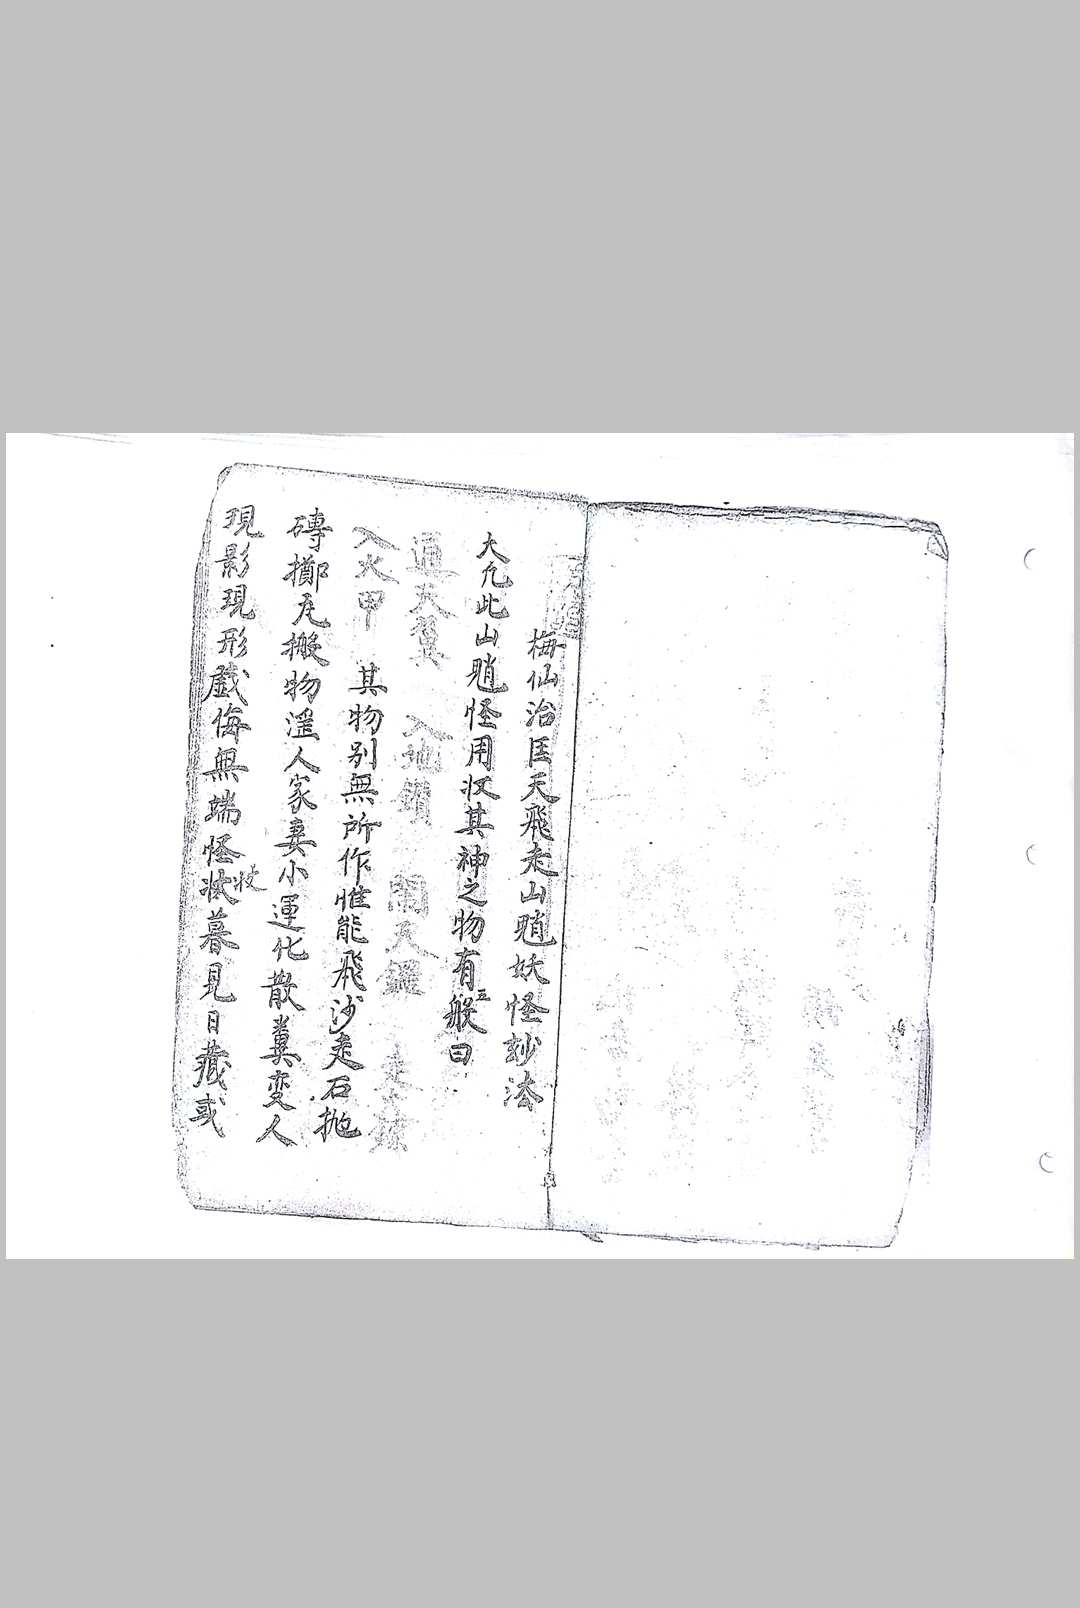 梅仙治匡天飛走山魈妖怪玅法
大凢此山魈怪用収其神之物有五般曰
通天翼 入地鑽 鬧天鑼
入火甲 其物別無所作惟能飛沙走石抛
磚擲瓦搬物滛人家妻小運化散糞変人
現影現形戲侮無端怪狀暮見日藏或